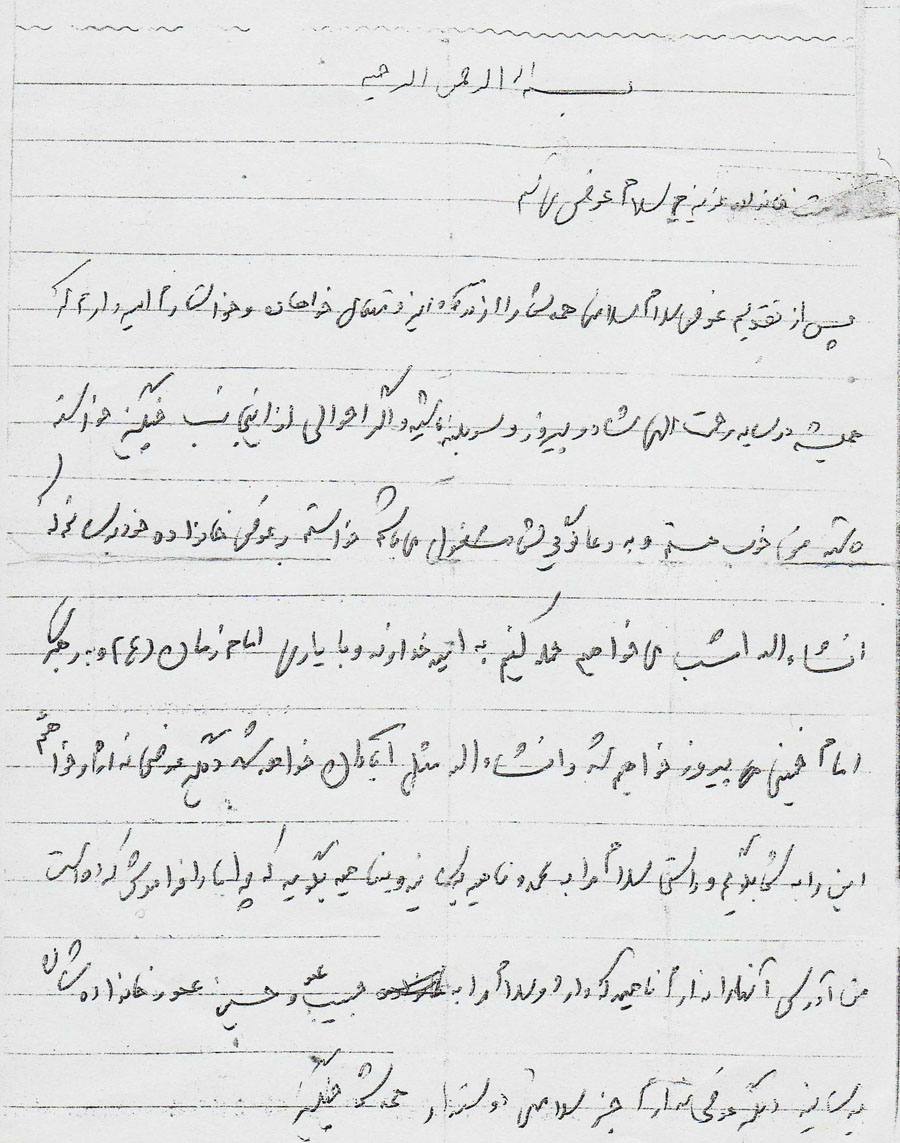 بسم الله الرحمن الرحیم
خدمت خانواده عزیزم سلام عرض می‌کنم
پس از تقدیم عرض سلام سلامتی همه شما را از درگاه ایزد متعال خواهان و خواستارم امیدوارم که
همیشه در سایه رحمت الهی شاد و پیروز و سربلند باشید و اگر احوالی از اینجانب خواسته
باشید من خوب هستم و به دعاگویی شما مشغول می‌باشم خواستم به عرض خانواده خود برسانم که
انشاءالله امشب می خواهیم حمله کنیم به امید خداوند و با یاری امام زمان (ع) و به رهبری
امام خمینی پیروز خواهیم شد و انشاءالله دیگر عرضی ندارم و خواهم
این را به شما بگویم و راستی سلام مرا به محمد و ناصر برسانید و بگویید که چرا ما را فراموش کرده است
من آدرس آنها را ندارم ناصر که دارد و سلام مرا به حبیب و حسین عمو خانواده شان
برسانید دیگر عرضی ندارم جز سلامتی دوستدار همه شما